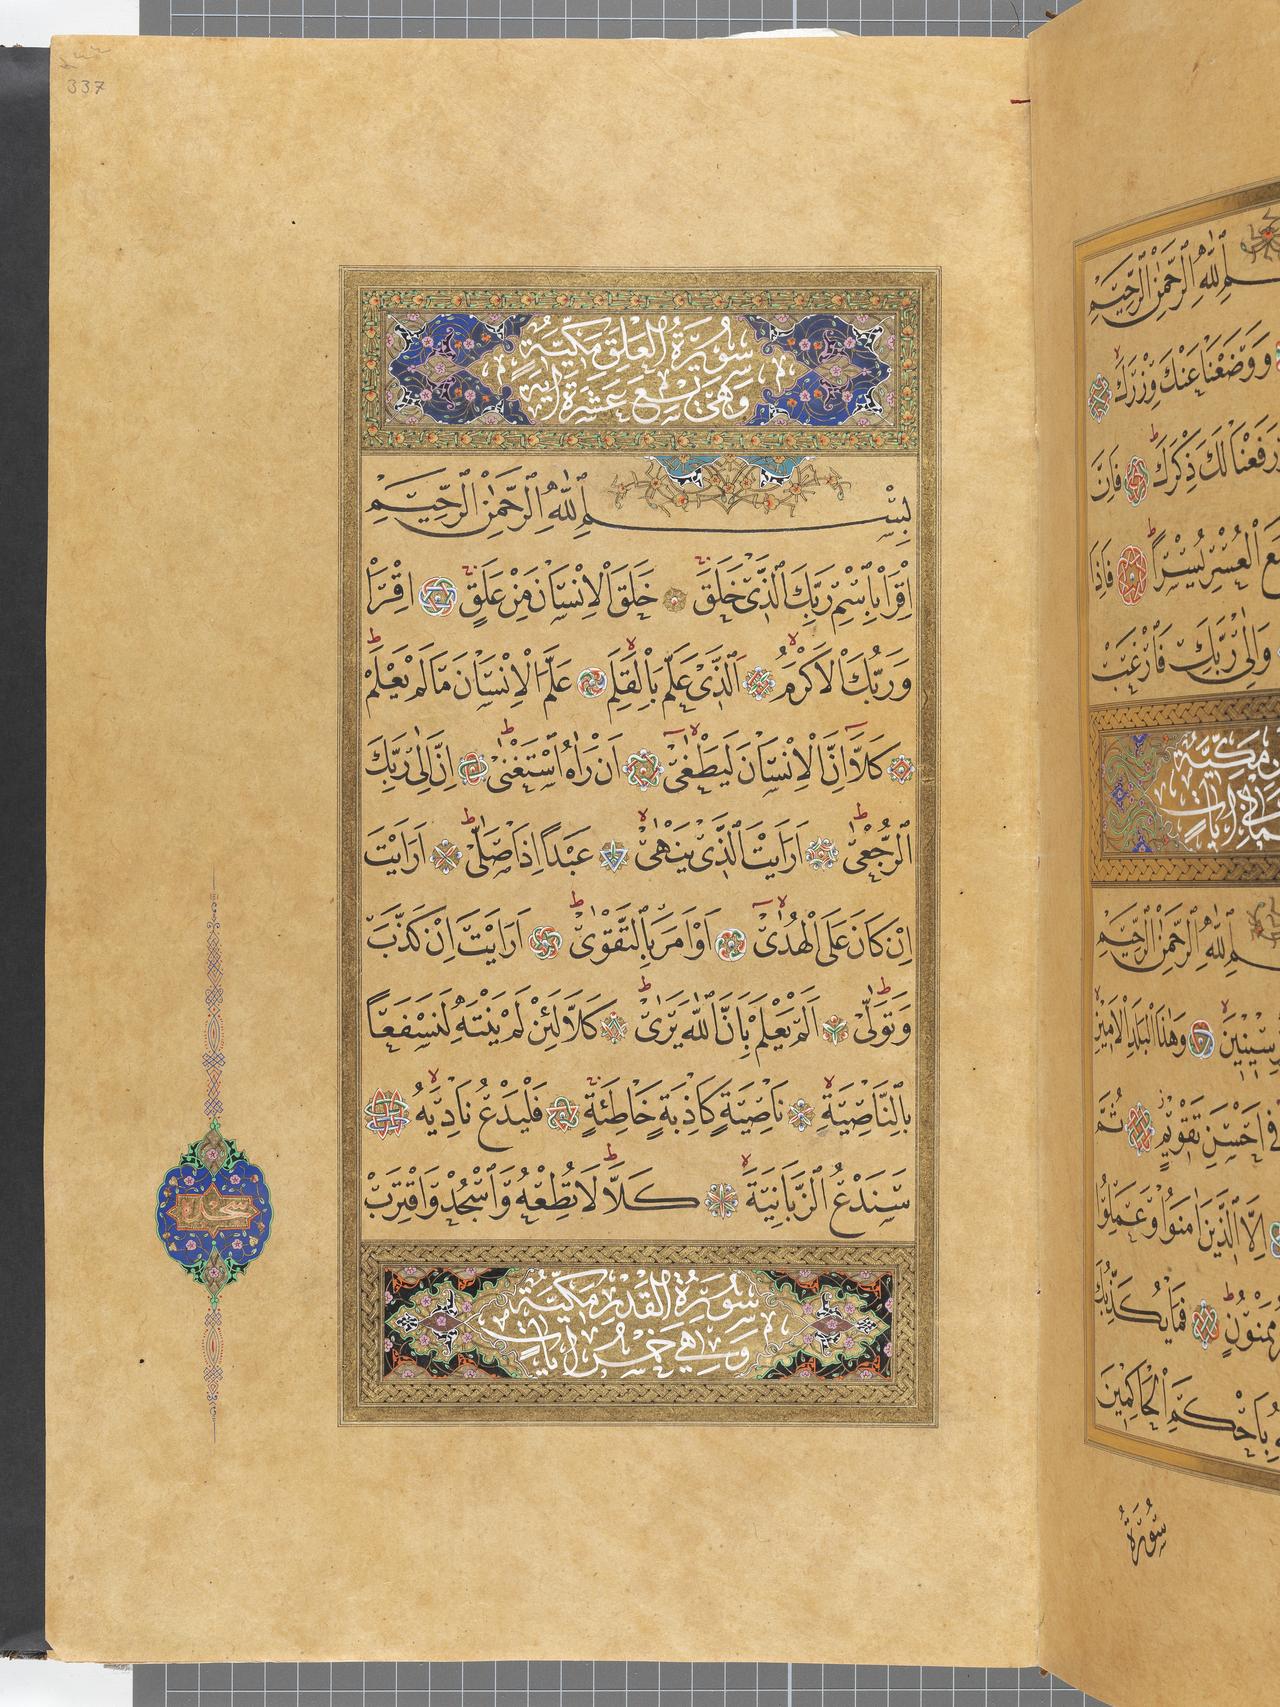 337
سُورَةُ الْعَلَقِ مَكِّيَّةٌ
وَهِيَ تِسْعَ عَشْرَةَ اٰيَة
بِسْمِ اللّٰهِ الرَّحْمٰنِ الرَّحِيمِ
اِقْرَأْ بِاسْمِ رَبِّكَ الَّذِى خَلَقَ خَلَقَ الْاِنْسَانَ مِنْ عَلَقٍ اِقْرَأْ
وَرَبُّكَ الْاَكْرَمُ اَلَّذِى عَلَّمَ بِالْقَلَمِ عَلَّمَ الْاِنْسَانَ مَا لَمْ يَعْلَمْ
كَلَّا اِنَّ الْاِنْسَانَ لَيَطْغٰى اَنْ رَاٰهُ اسْتَغْنٰى اِنَّ اِلٰى رَبِّكَ
الرُّجْعٰى اَرَاَيْتَ الَّذِى يَنْهٰى عَبْدًا اِذَا صَلّٰى اَرَاَيْتَ
اِنْ كَانَ عَلَى الْهُدٰى اَوْ اَمَرَ بِالتَّقْوٰى اَرَاَيْتَ اِنْ كَذَّبَ
وَتَوَلّٰى اَلَمْ يَعْلَمْ بِاَنَّ اللّٰهَ يَرٰى كَلَّا لَئِنْ لَمْ يَنْتَهِ لَنَسْفَعًا
بِالنَّاصِيَةِ نَاصِيَةٍ كَاذِبَةٍ خَاطِئَةٍ فَلْيَدْعُ نَادِيَهُ
سَنَدْعُ الزَّبَانِيَةَ كَلَّا لَا تُطِعْهُ وَاسْجُدْ وَاقْتَرِبْ
سُورَةُ الْقَدْرِ مَكِّيَّةٌ
وَهِيَ خَمْسُ اٰيَاتٍ
سجده
لِلّٰهِ الرَّحْمٰنِ الرَّحِيمِ
وَوَضَعْنَا عَنْكَ وِزْرَكَ
وَرَفَعْنَا لَكَ ذِكْرَكَ فَاِنَّ
الْعُسْرِ يُسْرًا فَاِذَا
وَاِلٰى رَبِّكَ فَارْغَبْ
مَكِّيَّةٌ
اٰيَاتٍ
اللّٰهِ الرَّحْمٰنِ الرَّحِيمِ
سِينِينَ وَهٰذَا الْبَلَدِ الْاَمِينِ
فِى اَحْسَنِ تَقْوِيمٍ ثُمَّ
اِلَّا الَّذِينَ اٰمَنُوا وَعَمِلُوا
مَمْنُونٍ فَمَا يُكَذِّبُكَ
بِاَحْكَمِ الْحَاكِمِينَ
سُورَةُ